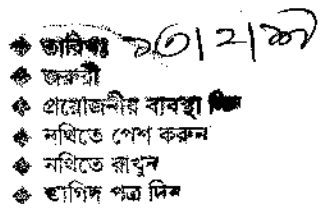 ❖ তারিখঃ
❖ জরুরী
❖ প্রয়োজনীয় ব্যবস্থা নিন
❖ নথিতে পেশ করুন
❖ নথিতে রাখুন
❖ তাগিদ পত্র দিন